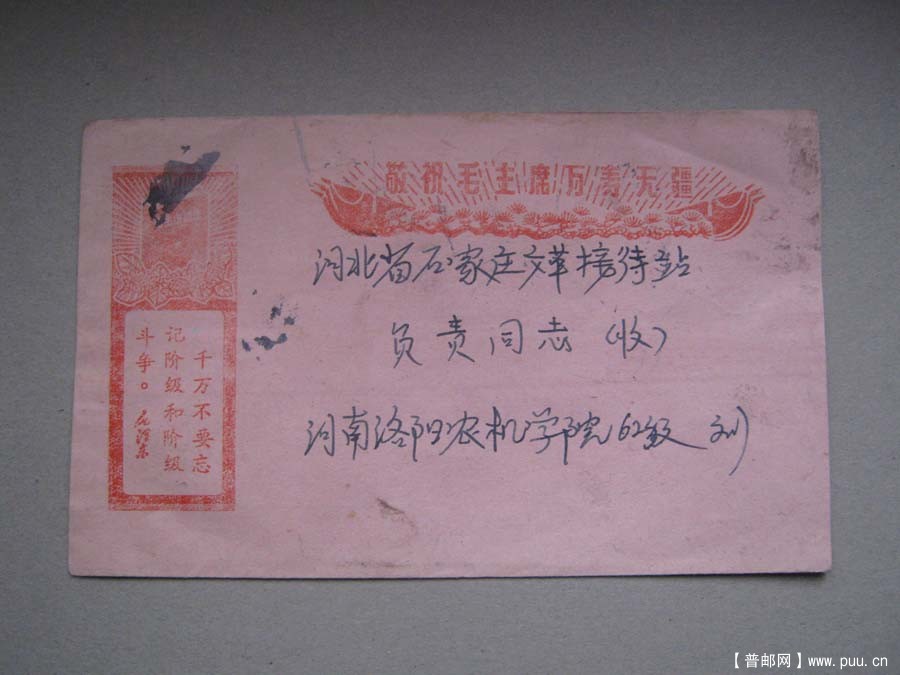 敬祝毛主席万寿无疆
河北省石家庄文革接待站
负责同志（收）
河南洛阳农机学院62级 刘
千万不要忘
记阶级和阶级
斗争。 毛泽东
【普邮网】www.puu.cn